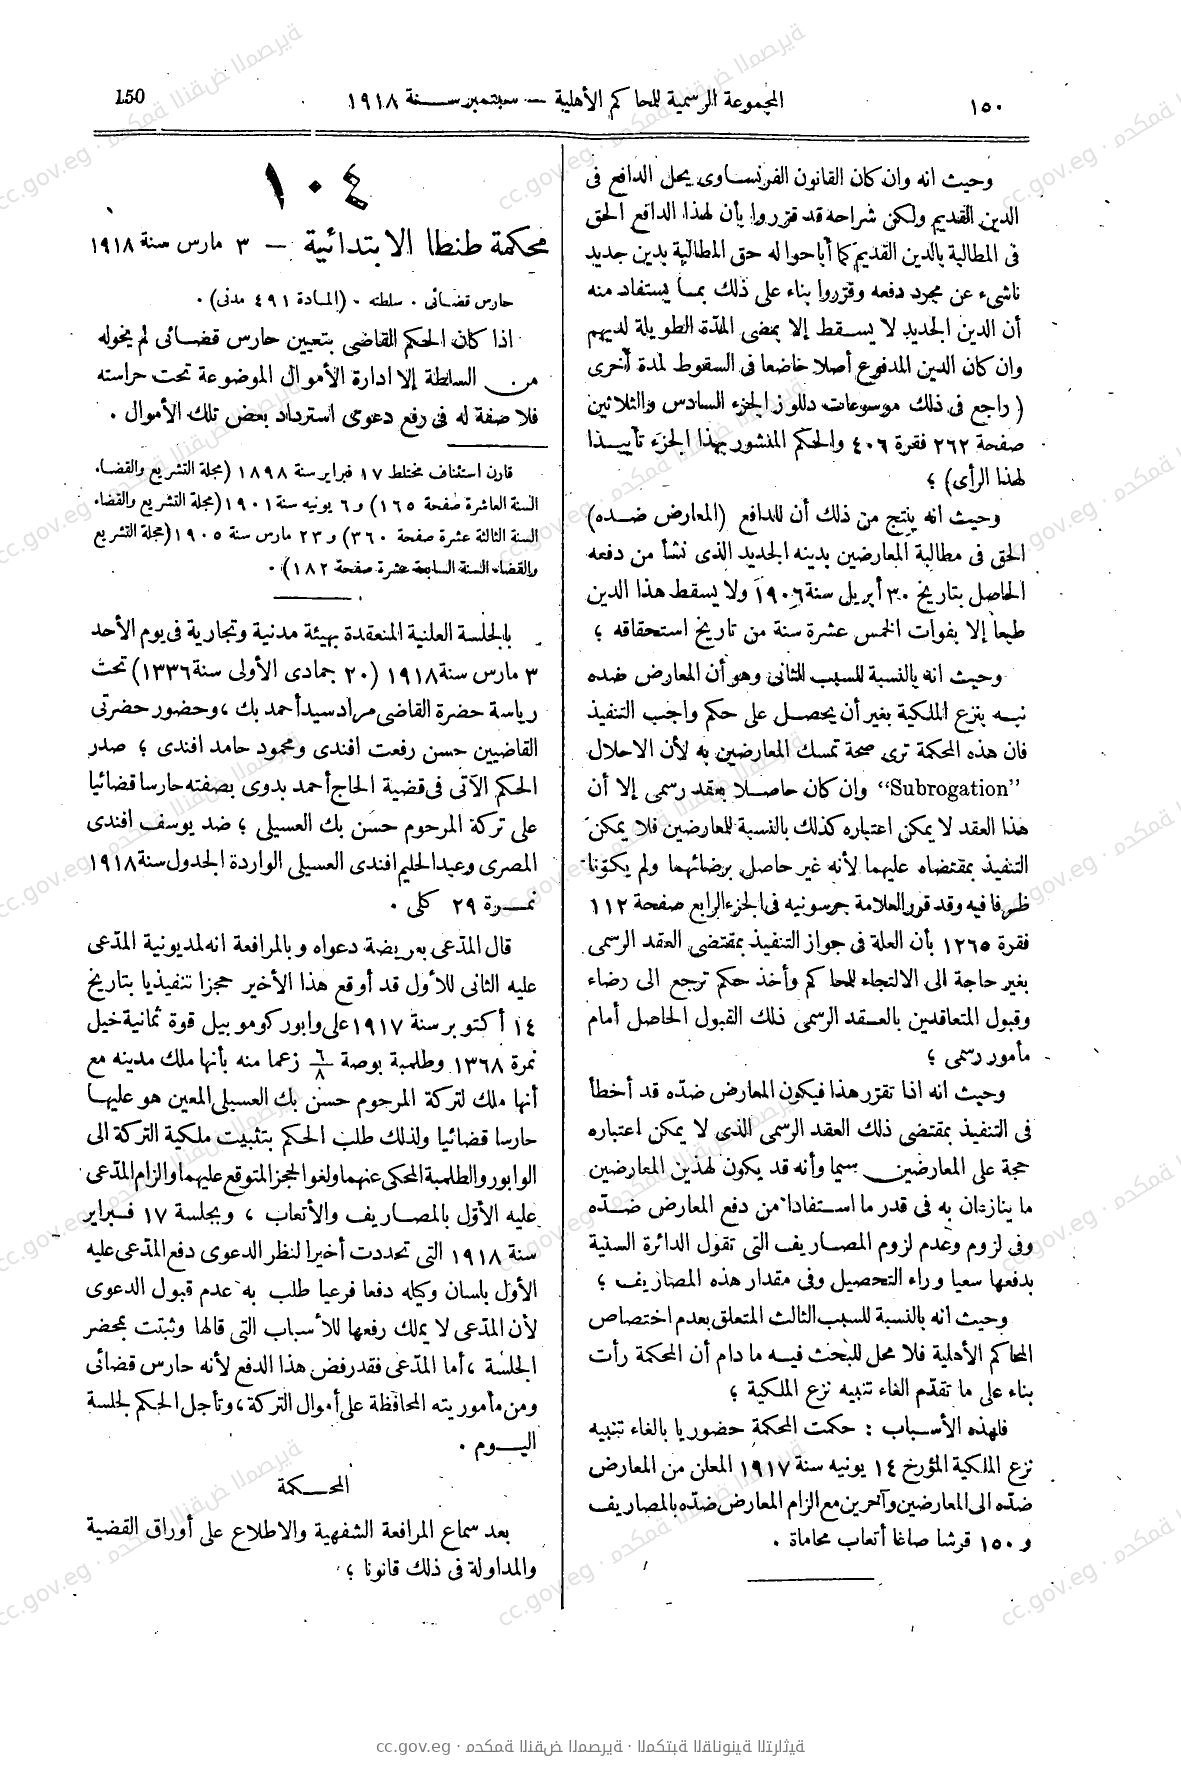 ١٥٠
المجموعة الرسمية للمحاكم الأهلية — سبتمبر سنة ١٩١٨
150
وحيث انه وان كان القانون الفرنساوى يحل الدافع فى
الدين القديم ولكن شراحه قد قرّروا بأن لهذا الدافع الحق
فى المطالبة بالدين القديم كما أباحوا له حق المطالبة بدين جديد
ناشىء عن مجرد دفعه وقرّروا بناء على ذلك بما يستفاد منه
أن الدين الجديد لا يسقط إلا بمضى المدّة الطويلة لديهم
وان كان الدين المدفوع أصلا خاضعا فى السقوط لمدة أخرى
( راجع فى ذلك موسوعات دللوز الجزء السادس والثلاثين
صفحة ٢٦٢ فقرة ٤٠٦ والحكم المنشور بهذا الجزء تأييدا
لهذا الرأى) ؛
وحيث انه ينتج من ذلك أن للدافع (المعارض ضده)
الحق فى مطالبة المعارضين بدينه الجديد الذى نشأ من دفعه
الحاصل بتاريخ ٣٠ أبريل سنة ١٩٠٦ ولا يسقط هذا الدين
طبعا إلا بفوات الخمس عشرة سنة من تاريخ استحقاقه ؛
وحيث انه بالنسبة للسبب الثانى وهو أن المعارض ضده
نبه بنزع الملكية بغير أن يحصل على حكم واجب التنفيذ
فان هذه المحكمة ترى صحة تمسك المعارضين به لأن الاحلال
“Subrogation” وان كان حاصلا بعقد رسمى إلا أن
هذا العقد لا يمكن اعتباره كذلك بالنسبة للمعارضين فلا يمكن
التنفيذ بمقتضاه عليهما لأنه غير حاصل برضائهما ولم يكوّنا
ظرفا فيه وقد قرر العلامة جرسونيه فى الجزء الرابع صفحة ١١٢
فقرة ١٢٦٥ بأن العلة فى جواز التنفيذ بمقتضى العقد الرسمى
بغير حاجة الى الالتجاء للمحاكم وأخذ حكم ترجع الى رضاء
وقبول المتعاقدين بالعقد الرسمى ذلك القبول الحاصل أمام
مأمور رسمى ؛
وحيث انه اذا تقرّر هذا فيكون المعارض ضدّه قد أخطأ
فى التنفيذ بمقتضى ذلك العقد الرسمى الذى لا يمكن اعتباره
حجة على المعارضين سيما وأنه قد يكون لهذين المعارضين
ما ينازعان به فى قدر ما استفادا من دفع المعارض ضدّه
وفى لزوم وعدم لزوم المصاريف التى تقول الدائرة السنية
بدفعها سعيا وراء التحصيل وفى مقدار هذه المصاريف ؛
وحيث انه بالنسبة للسبب الثالث المتعلق بعدم اختصاص
المحاكم الأهلية فلا محل للبحث فيه ما دام أن المحكمة رأت
بناء على ما تقدّم الغاء تنبيه نزع الملكية ؛
فلهذه الأسباب : حكمت المحكمة حضوريا بالغاء تنبيه
نزع الملكية المؤرخ ١٤ يونيه سنة ١٩١٧ المعلن من المعارض
ضدّه الى المعارضين وآخرين مع الزام المعارض ضدّه بالمصاريف
و ١٥٠ قرشا صاغا أتعاب محاماة .
١٠٤
محكمة طنطا الابتدائية — ٣ مارس سنة ١٩١٨
حارس قضائى . سلطته . (المادة ٤٩١ مدنى) .
اذا كان الحكم القاضى بتعيين حارس قضائى لم يخوله
من السلطة إلا ادارة الأموال الموضوعة تحت حراسته
فلا صفة له فى رفع دعوى استرداد بعض تلك الأموال .
قارن استئناف مختلط ١٧ فبراير سنة ١٨٩٨ (مجلة التشريع والقضاء
السنة العاشرة صفحة ١٦٥) و ٦ يونيه سنة ١٩٠١ (مجلة التشريع والقضاء
السنة الثالثة عشرة صفحة ٣٦٠) و ٢٣ مارس سنة ١٩٠٥ (مجلة التشريع
والقضاء السنة السابعة عشرة صفحة ١٨٢) .
بالجلسة العلنية المنعقدة بهيئة مدنية وتجارية فى يوم الأحد
٣ مارس سنة ١٩١٨ (٢٠ جمادى الأولى سنة ١٣٣٦) تحت
رياسة حضرة القاضى مراد سيد أحمد بك ، وحضور حضرتى
القاضيين حسن رفعت افندى ومحمود حامد افندى ؛ صدر
الحكم الآتى فى قضية الحاج أحمد بدوى بصفته حارسا قضائيا
على تركة المرحوم حسن بك العسيلى ؛ ضد يوسف افندى
المصرى وعبد الحليم افندى العسيلى الواردة الجدول سنة ١٩١٨
نمرة ٢٩ كلى .
قال المدّعى بعريضة دعواه وبالمرافعة انه لمديونية المدّعى
عليه الثانى للأول قد أوقع هذا الأخير حجزا تنفيذيا بتاريخ
١٤ أكتوبر سنة ١٩١٧ على وابور كومو بيل قوة ثمانية خيل
نمرة ١٣٦٨ وطلمبة بوصة ٦/٨ زعما منه بأنها ملك مدينه مع
أنها ملك لتركة المرحوم حسن بك العسيلى المعين هو عليها
حارسا قضائيا ولذلك طلب الحكم بتثبيت ملكية التركة الى
الوابور والطلمبة المحكى عنهما ولغو الحجز المتوقع عليهما والزام المدّعى
عليه الأوّل بالمصاريف والأتعاب ، وبجلسة ١٧ فبراير
سنة ١٩١٨ التى تحددت أخيرا لنظر الدعوى دفع المدّعى عليه
الأوّل بلسان وكيله دفعا فرعيا طلب به عدم قبول الدعوى
لأن المدّعى لا يملك رفعها للأسباب التى قالها وثبتت بمحضر
الجلسة ، أما المدّعى فقد رفض هذا الدفع لأنه حارس قضائى
ومن مأموريته المحافظة على أموال التركة ، وتأجل الحكم لجلسة
اليوم .
المحكمة
بعد سماع المرافعة الشفهية والاطلاع على أوراق القضية
والمداولة فى ذلك قانونا ؛
cc.gov.eg · محكمة النقض المصرية · المكتبة القانونية التراثية